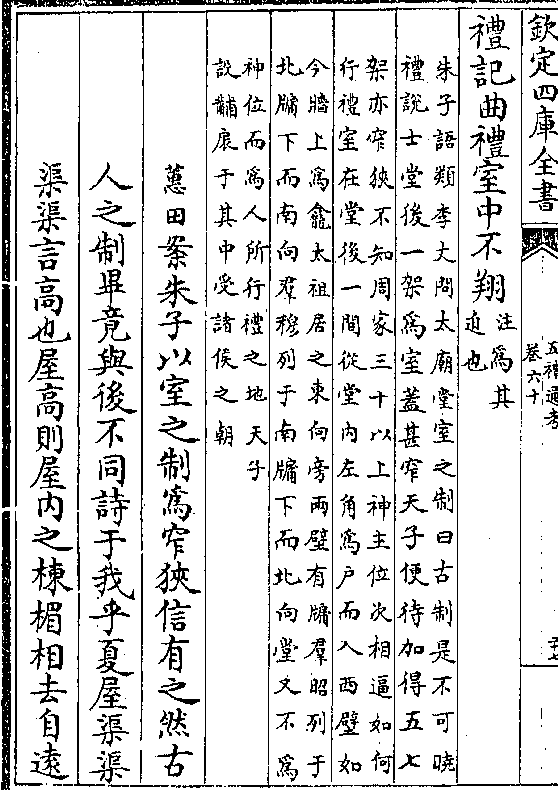 欽定四庫全書
五禮通考
卷六十
禮記曲禮室中不翔
注為其
迫也
朱子語類李丈問太廟堂室之制曰古制是不可曉
禮說士堂後一架為室蓋甚窄天子便待加得五七
架亦窄狹不知周家三十以上神主位次相逼如何
行禮室在堂後一間從堂内左角為户而入西壁如
今牆上為龕太祖居之東向旁兩壁有牖羣昭列于
北牖下而南向羣穆列于南牖下而北向堂又不為
神位而為人所行禮之地天子
設黼扆于其中受諸侯之朝
蕙田案朱子以室之制為窄狹信有之然古
人之制畢竟與後不同詩于我乎夏屋渠渠
渠渠言高也屋高則屋内之棟楣相去自遠